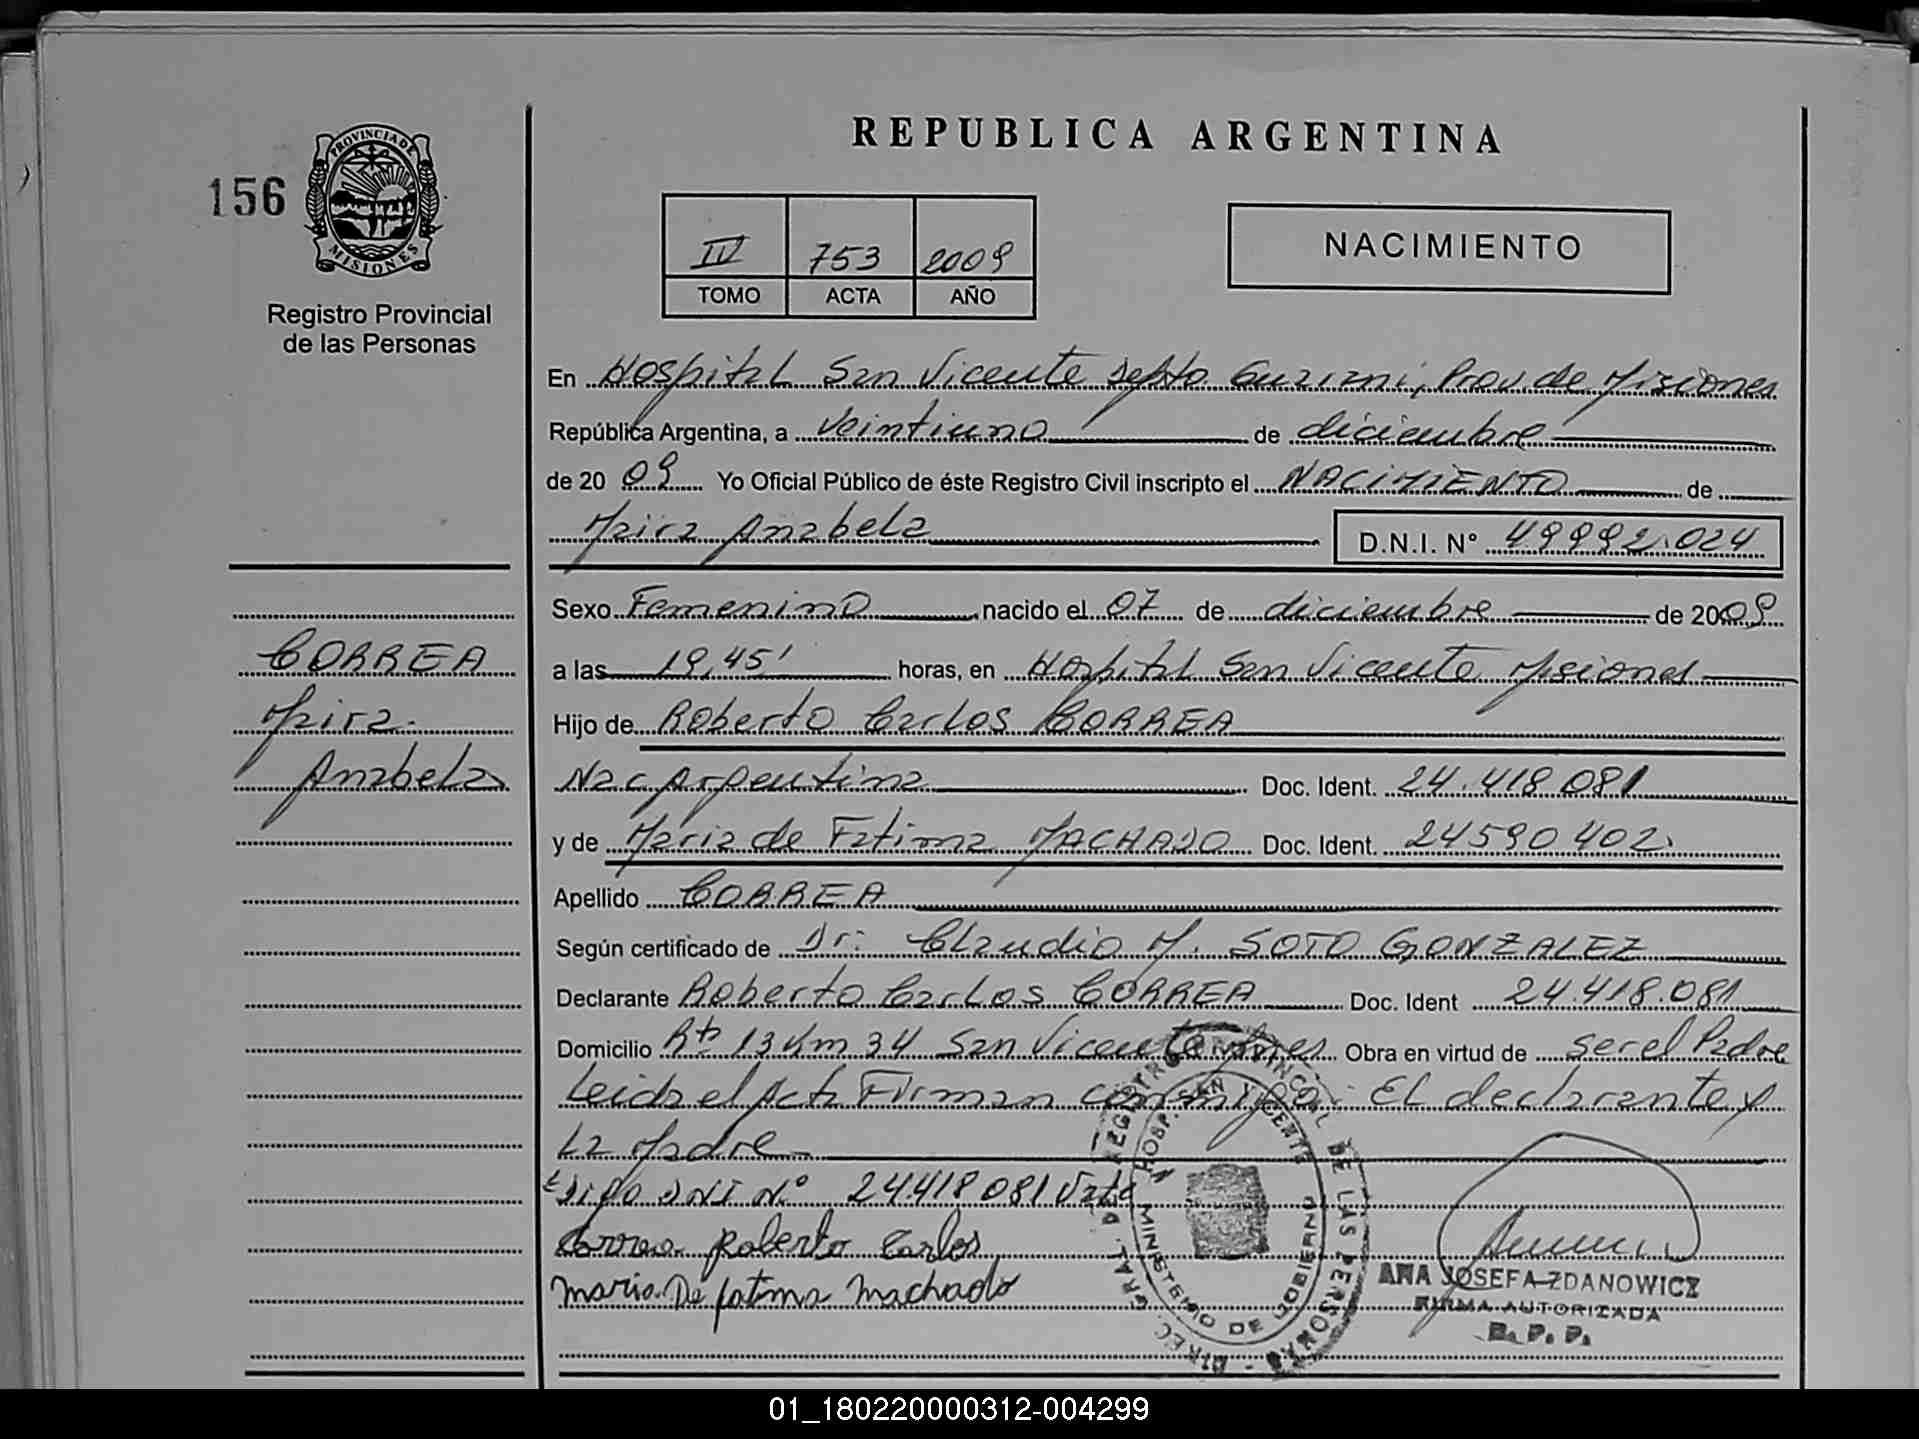 REPUBLICA ARGENTINA
156
PROVINCIA DE
MISIONES
Registro Provincial
de las Personas
IV 753 2009
TOMO ACTA AÑO
NACIMIENTO
En Hospital San Vicente Depto Guarani, Prov de Misiones
República Argentina, a veintiuno de diciembre
de 2009 Yo Oficial Público de éste Registro Civil inscripto el NACIMIENTO de
Maira Anabela D.N.I. N° 49992.024
Sexo Femenino nacido el 07 de diciembre de 2009
CORREA
Maira
Anabela
a las 19,45' horas, en Hospital San Vicente Misiones
Hijo de Roberto Carlos CORREA
Nac Argentina Doc. Ident. 24.418 081
y de Maria de Fatima MACHADO Doc. Ident. 24590 402
Apellido CORREA
Según certificado de Dr: Claudio M. SOTO GONZALEZ
Declarante Roberto Carlos CORREA Doc. Ident 24.418.081
Domicilio Rta 13 Km 34 San Vicente Mnes Obra en virtud de ser el Padre
Leida el Acta Firman conmigo: El declarante y
La Madre
Digo DNI N° 24.418 081 Vale
Correa Roberto Carlos
Maria De fatima Machado
DIREC. GRAL. DE REGISTRO PROVINCIAL DE LAS PERSONAS
HOSP. SAN VICENTE
MINISTERIO DE GOBIERNO
ANA JOSEFA ZDANOWICZ
FIRMA AUTORIZADA
R. P. P.
01_180220000312-004299